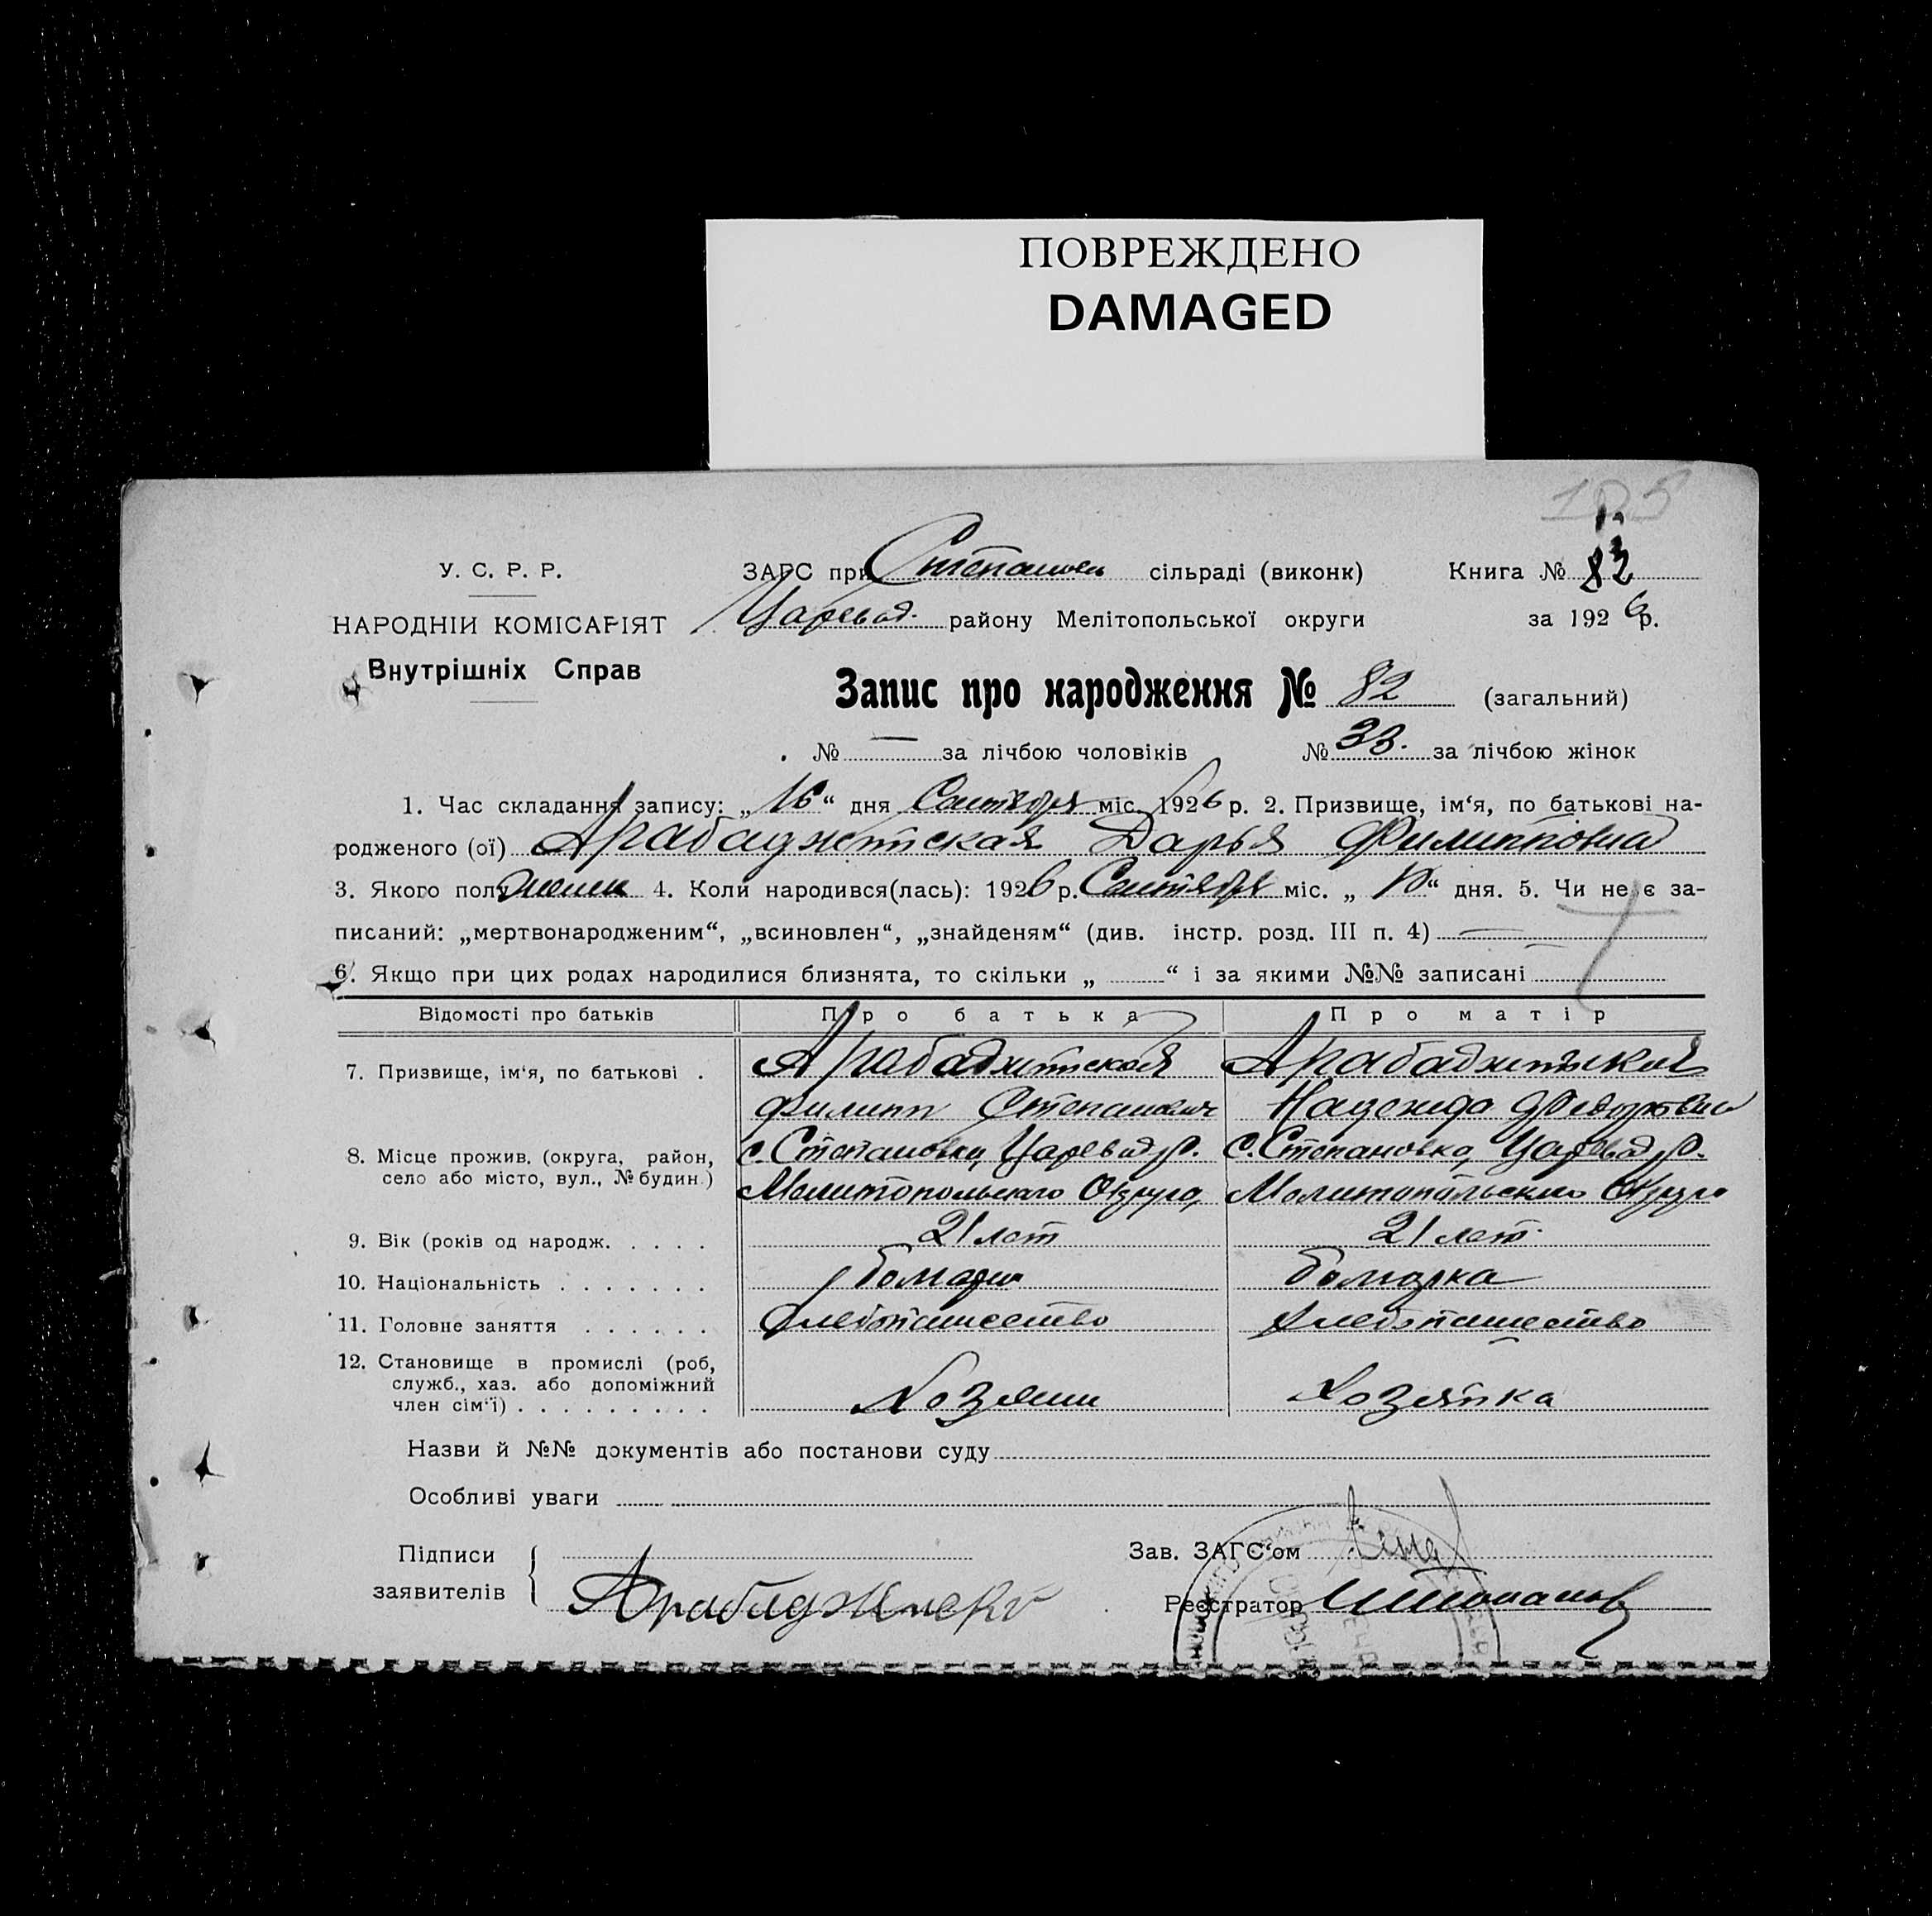 ПОВРЕЖДЕНО
DAMAGED
У. С. Р. Р.
НАРОДНІЙ КОМІСАРІЯТ
Внутрішніх Справ
ЗАГС при Степанов сільраді (виконк)
Царевод. району Мелітопольської округи
Книга № 83
за 1926 р.
Запис про народження № 82 (загальний)
№ — за лічбою чоловіків № 33. за лічбою жінок
1. Час складання запису: „16“ дня Сентября міс. 1926 р. 2. Призвище, ім‘я, по батькові на-
родженого (ої) Арабаджитская Дарья Филипповна
3. Якого полу женск 4. Коли народився(лась): 1926 р. Сентября міс. „ “ дня. 5. Чи не є за-
писаний: „мертвонародженим“, „всиновлен“, „знайденям“ (див. інстр. розд. III п. 4) —
6. Якщо при цих родах народилися близнята, то скільки „ “ і за якими №№ записані
Відомості про батьків Про батька Про матір
7. Призвище, ім‘я, по батькові . Арабаджитской Арабаджитская
Филипп Степанович Надежда Федоровна
8. Місце прожив. (округа, район, с. Степановка, Царевод р. с. Степановка, Царевод р.
село або місто, вул., № будин.) Мелитопольского Округа, Мелитопольского Округа
9. Вік (років од народж. . . . . 21 лет 21 лет
10. Національність . . . . . . . болгарин болгарка
11. Головне заняття . . . . . . хлебопашество хлебопашество
12. Становище в промислі (роб,
служб., хаз. або допоміжний
член сім‘ї) . . . . . . . . . Хозяин Хозяйка
Назви й №№ документів або постанови суду
Особливі уваги
Підписи
заявителів
Зав. ЗАГС‘ом
Реєстратор